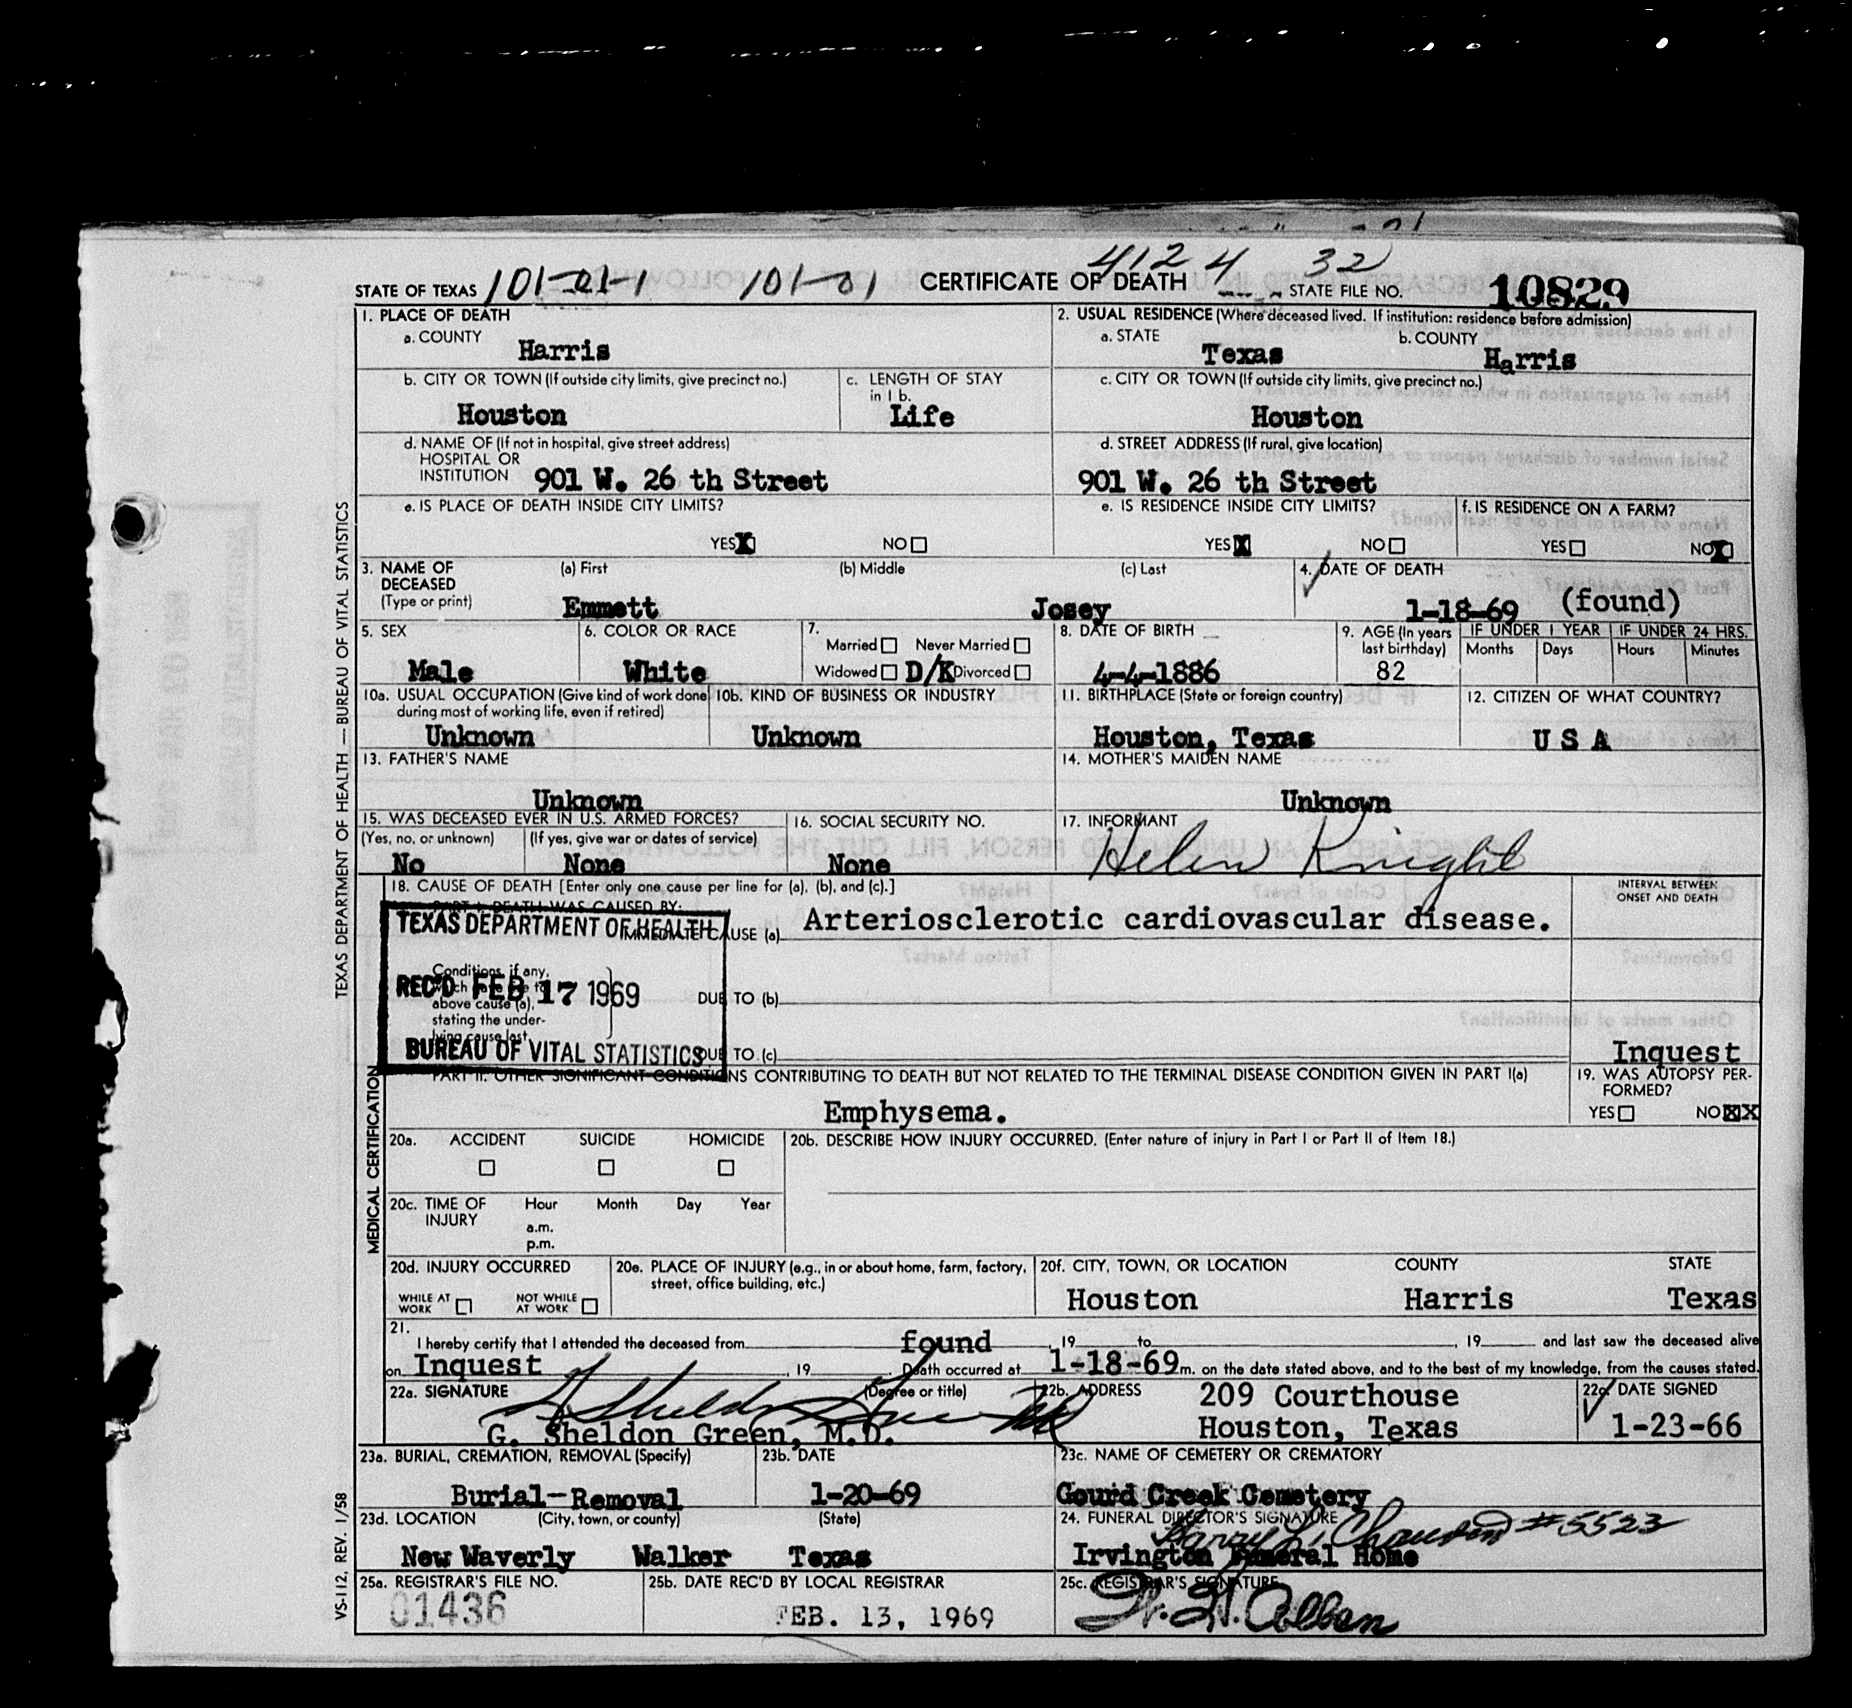 STATE OF TEXAS 101-01-1 101-01 CERTIFICATE OF DEATH 4124 32 STATE FILE NO. 10829
1. PLACE OF DEATH
a. COUNTY
Harris
2. USUAL RESIDENCE (Where deceased lived. If institution: residence before admission)
a. STATE b. COUNTY
Texas Harris
b. CITY OR TOWN (If outside city limits, give precinct no.)
Houston
c. LENGTH OF STAY
in 1 b.
Life
c. CITY OR TOWN (If outside city limits, give precinct no.)
Houston
d. NAME OF (If not in hospital, give street address)
HOSPITAL OR
INSTITUTION 901 W. 26 th Street
d. STREET ADDRESS (If rural, give location)
901 W. 26 th Street
e. IS PLACE OF DEATH INSIDE CITY LIMITS?
YES X NO
e. IS RESIDENCE INSIDE CITY LIMITS?
YES X NO
f. IS RESIDENCE ON A FARM?
YES NO X
3. NAME OF (a) First (b) Middle (c) Last
DECEASED
(Type or print) Emmett Josey
4. DATE OF DEATH
1-18-69 (found)
5. SEX
Male
6. COLOR OR RACE
White
7.
Married Never Married
Widowed D/K Divorced
8. DATE OF BIRTH
4-4-1886
9. AGE (In years
last birthday)
82
IF UNDER 1 YEAR IF UNDER 24 HRS.
Months Days Hours Minutes
10a. USUAL OCCUPATION (Give kind of work done
during most of working life, even if retired)
Unknown
10b. KIND OF BUSINESS OR INDUSTRY
Unknown
11. BIRTHPLACE (State or foreign country)
Houston, Texas
12. CITIZEN OF WHAT COUNTRY?
U S A
13. FATHER'S NAME
Unknown
14. MOTHER'S MAIDEN NAME
Unknown
15. WAS DECEASED EVER IN U.S. ARMED FORCES?
(Yes, no, or unknown) (If yes, give war or dates of service)
No None
16. SOCIAL SECURITY NO.
None
17. INFORMANT
Helen Knight
18. CAUSE OF DEATH [Enter only one cause per line for (a), (b), and (c).]
PART I. DEATH WAS CAUSED BY:
IMMEDIATE CAUSE (a) Arteriosclerotic cardiovascular disease.
INTERVAL BETWEEN
ONSET AND DEATH
TEXAS DEPARTMENT OF HEALTH
REC'D FEB 17 1969
BUREAU OF VITAL STATISTICS
Conditions, if any,
which gave rise to
above cause (a),
stating the under-
lying cause last.
DUE TO (b)
DUE TO (c)
Inquest
PART II. OTHER SIGNIFICANT CONDITIONS CONTRIBUTING TO DEATH BUT NOT RELATED TO THE TERMINAL DISEASE CONDITION GIVEN IN PART I(a)
Emphysema.
19. WAS AUTOPSY PER-
FORMED?
YES NO XX
20a. ACCIDENT SUICIDE HOMICIDE
20b. DESCRIBE HOW INJURY OCCURRED. (Enter nature of injury in Part I or Part II of Item 18.)
20c. TIME OF Hour Month Day Year
INJURY
a.m.
p.m.
20d. INJURY OCCURRED
WHILE AT NOT WHILE
WORK AT WORK
20e. PLACE OF INJURY (e.g., in or about home, farm, factory,
street, office building, etc.)
20f. CITY, TOWN, OR LOCATION COUNTY STATE
Houston Harris Texas
21.
I hereby certify that I attended the deceased from found , 19 to , 19 and last saw the deceased alive
on Inquest , 19 Death occurred at 1-18-69 m. on the date stated above, and to the best of my knowledge, from the causes stated.
22a. SIGNATURE (Degree or title)
G. Sheldon Green, M.D.
22b. ADDRESS 209 Courthouse
Houston, Texas
22c. DATE SIGNED
1-23-66
23a. BURIAL, CREMATION, REMOVAL (Specify)
Burial-Removal
23b. DATE
1-20-69
23c. NAME OF CEMETERY OR CREMATORY
Gourd Creek Cemetery
23d. LOCATION (City, town, or county) (State)
New Waverly Walker Texas
24. FUNERAL DIRECTOR'S SIGNATURE
Harry L. #5523
Irvington Funeral Home
25a. REGISTRAR'S FILE NO.
01436
25b. DATE REC'D BY LOCAL REGISTRAR
FEB. 13, 1969
25c. REGISTRAR'S SIGNATURE
TEXAS DEPARTMENT OF HEALTH — BUREAU OF VITAL STATISTICS
MEDICAL CERTIFICATION
VS-112, REV. 1/58